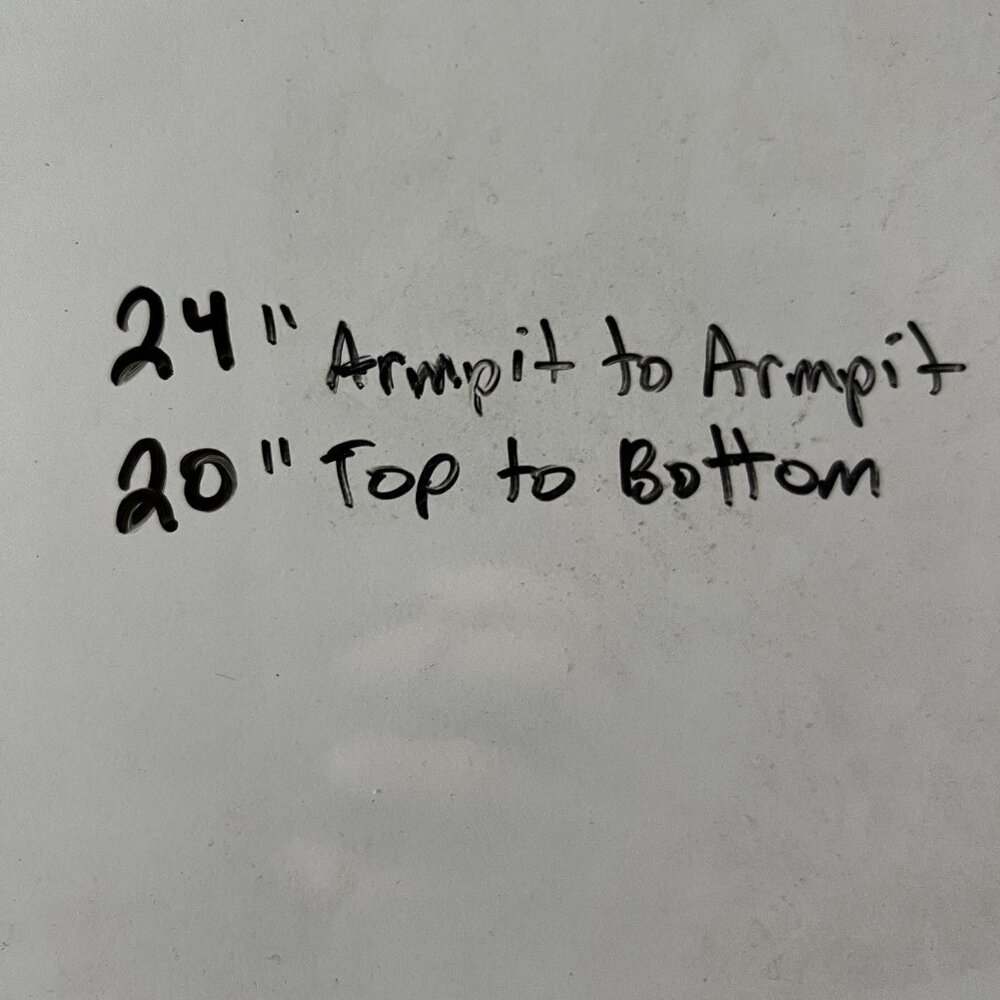 24" Armpit to Armpit
20" Top to Bottom